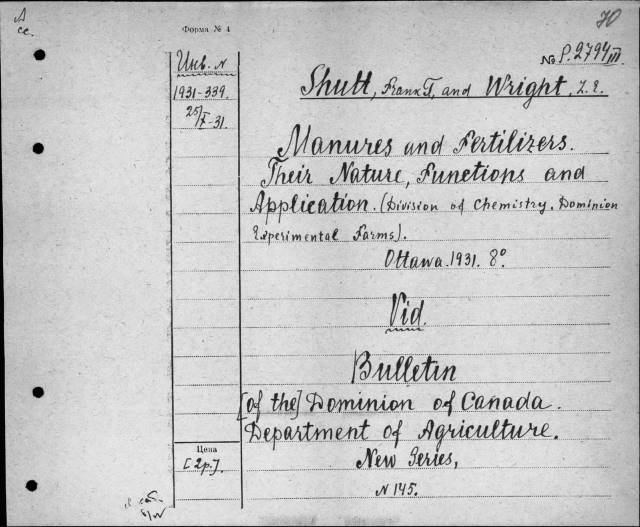 A
cc.
Форма № 4
70
Инв. N
1931-339.
25/X-31.
№ P.2794/III
Shutt, Frank T. and Wright, L. E.
Manures and Fertilizers.
Their Nature, Functions and
Application. (Division of Chemistry. Dominion
Experimental Farms).
Ottawa. 1931. 8°
Vid.
Bulletin
[of the] Dominion of Canada.
Department of Agriculture.
New Series,
N 145.
Цена
[2 р.].